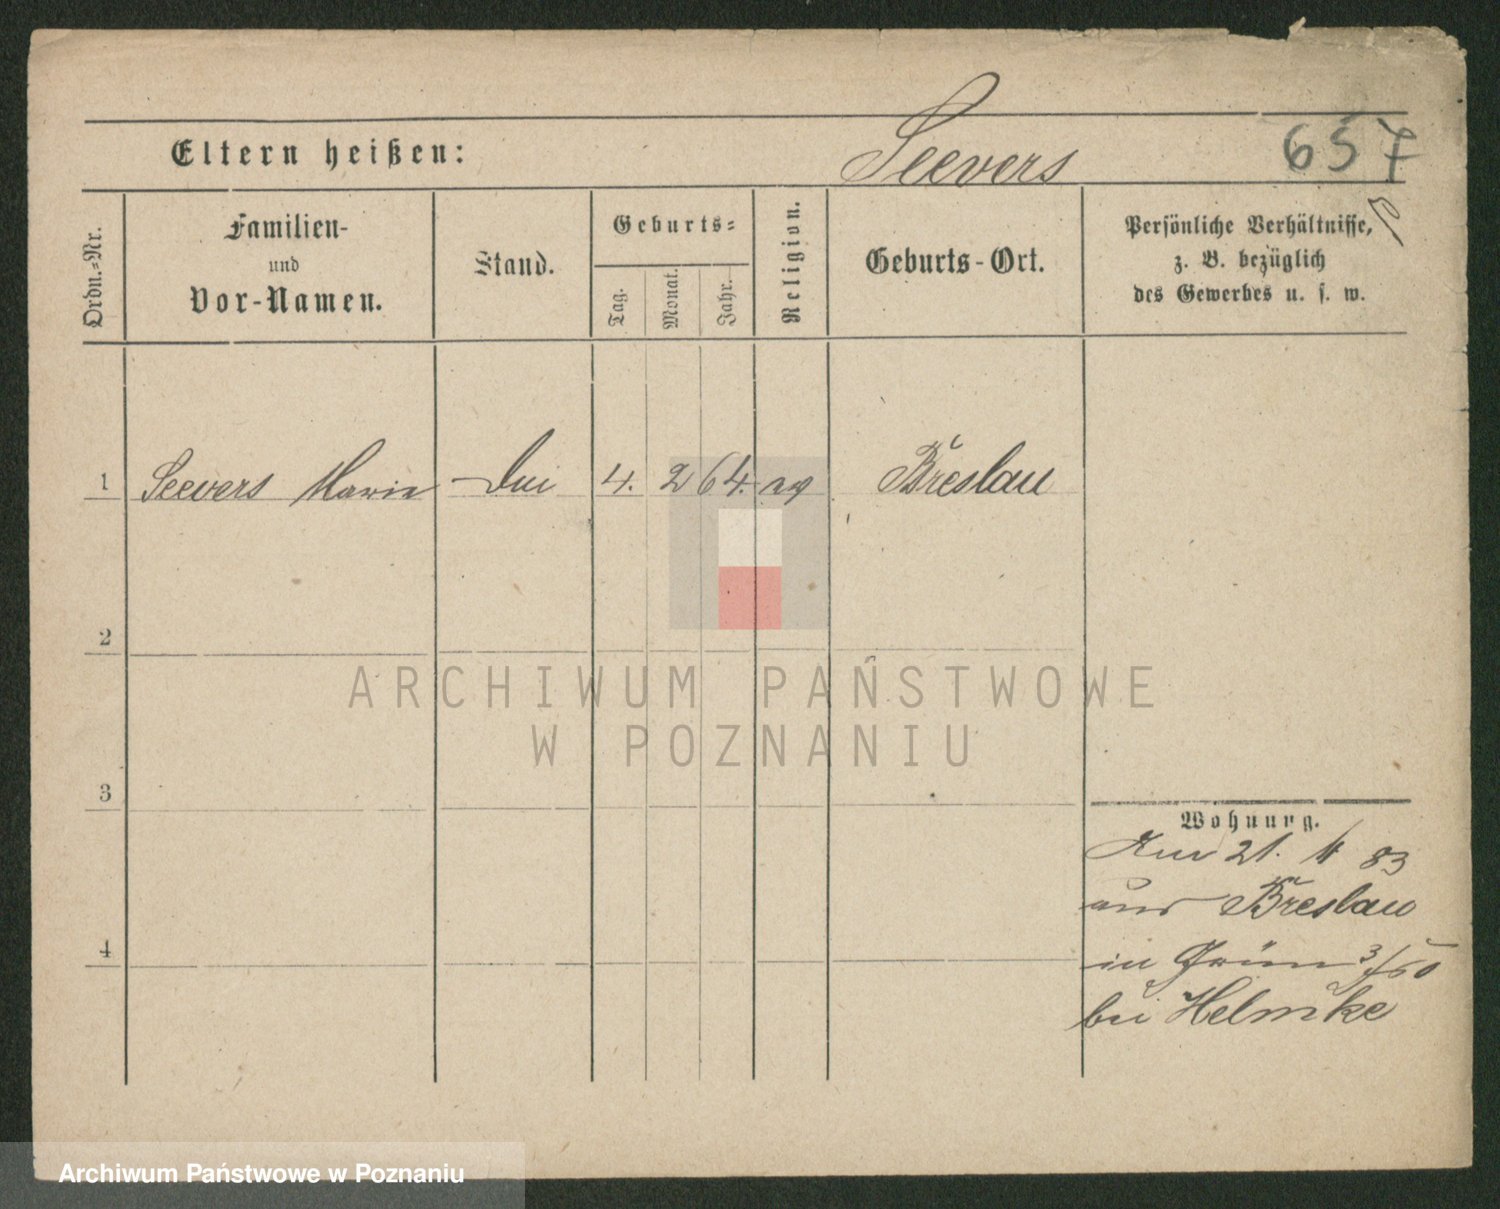 Eltern heißen: Seevers 657
Ordn.-Nr.
Familien-
und
Vor-Namen.
Stand.
Geburts-
Tag.
Monat.
Jahr.
Religion.
Geburts-Ort.
Persönliche Verhältnisse,
z. B. bezüglich
des Gewerbes u. s. w.
1 Seevers Marie 4. 2 64. Breslau
2
3
4
ARCHIWUM PAŃSTWOWE
W POZNANIU
Wohnung.
21. 83
aus Breslau
in
bei Helmke
Archiwum Państwowe w Poznaniu